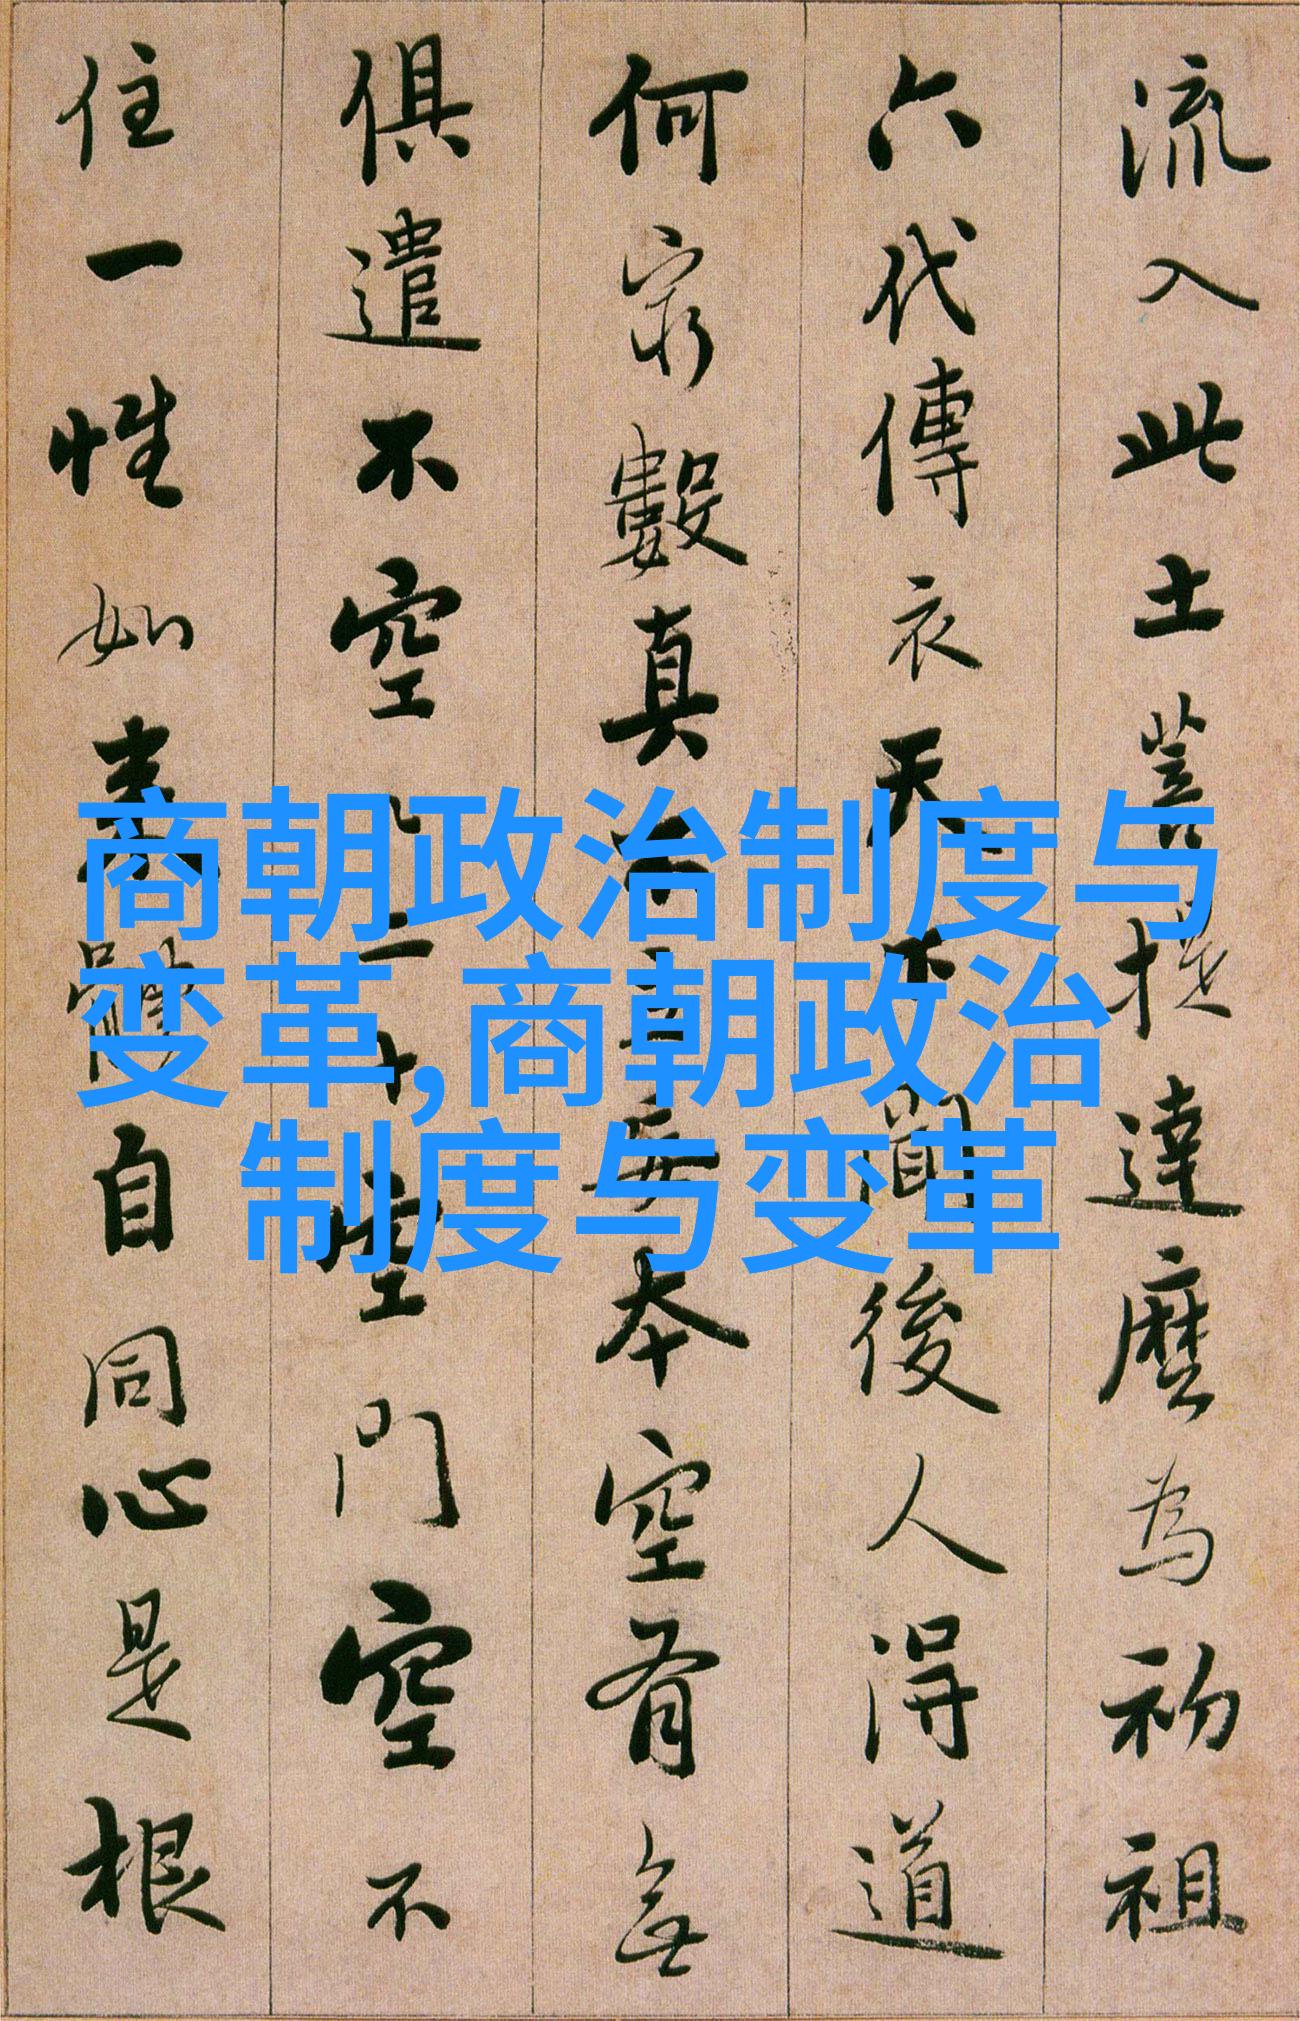 流入此土菩提達麼為初祖
六代傳衣天下聞後人得道
何窮數真不立妄本空有無
俱遣不空二十空門空不
住一性如来體自同心是根
商朝政治制度与
变革,商朝政治
制度与变革